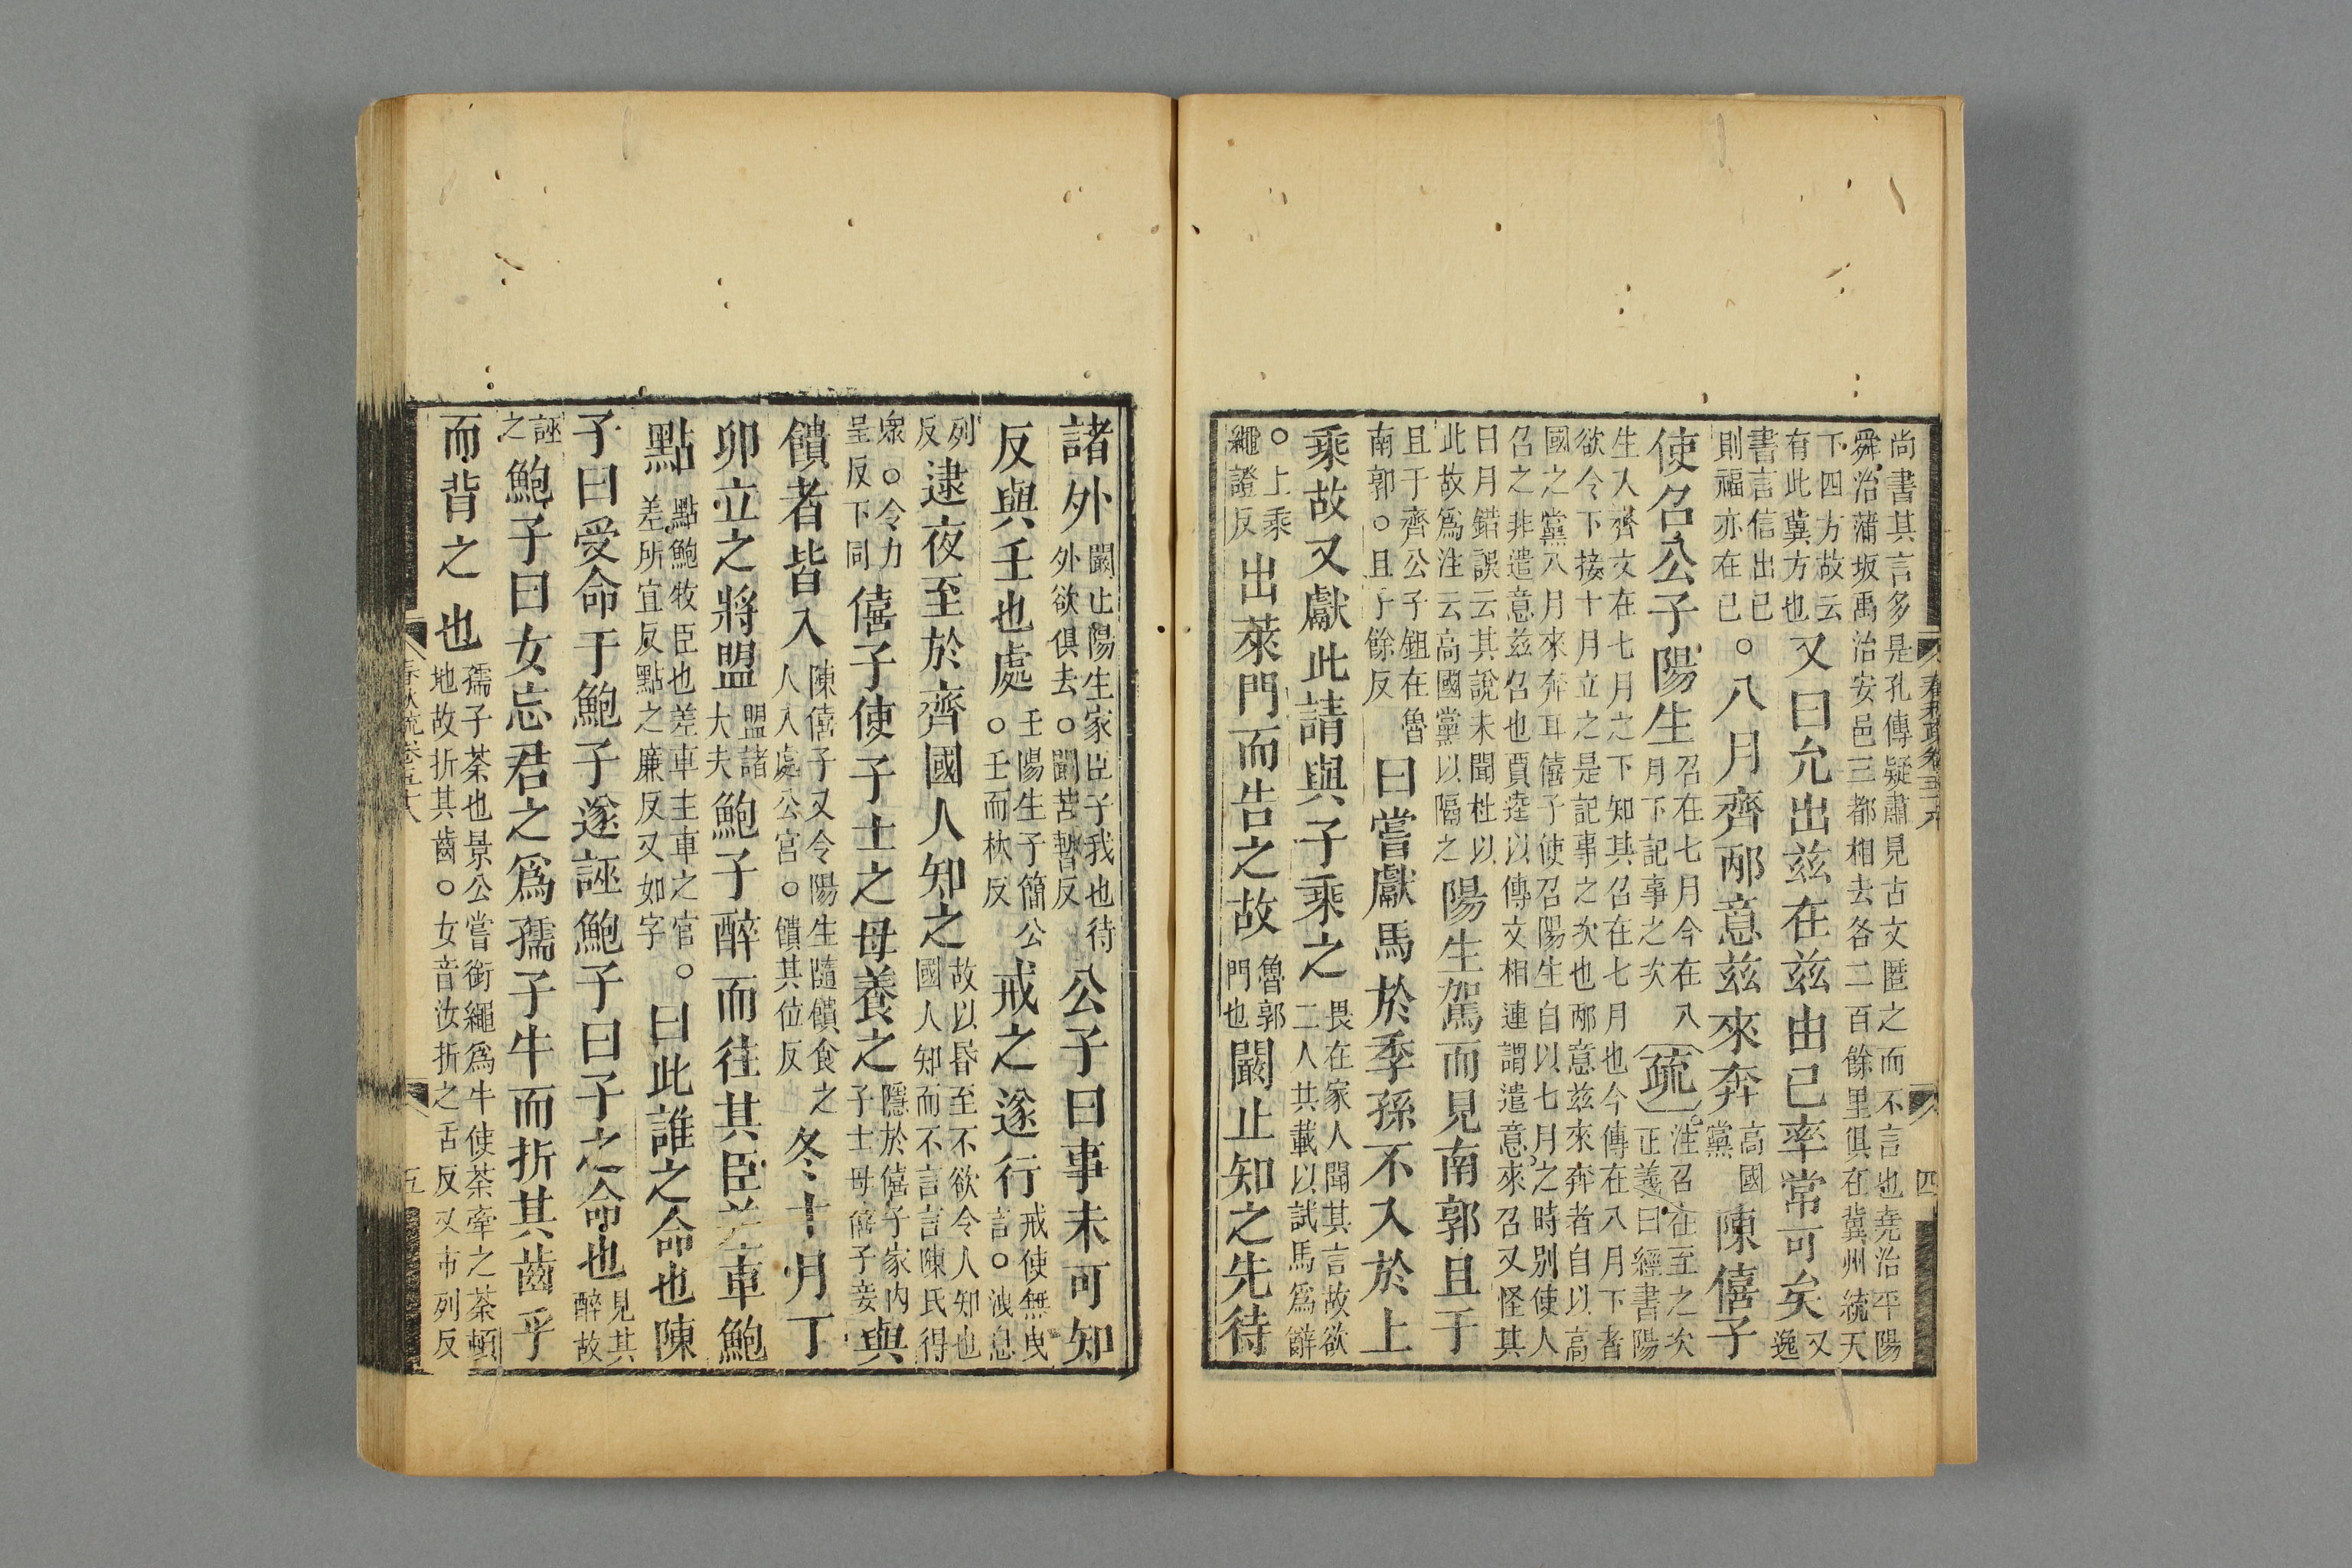 尚書其言多是孔傳疑肅見古文匿之而不言也堯治平陽
舜治蒲坂禹治安邑三都相去各二百餘里俱在冀州統天
下四方故云有此冀方也又曰允出兹在兹由己率常可矣又逸
書言信出己則福亦在己○八月齊邴意兹來奔高國黨陳僖子
使召公子陽生召在七月今在八月下記事之次疏注召在至之次正義曰經書陽
生入齊文在七月之下知其召在七月也今傳在八月下者
欲令下接十月立之是記事之次也邴意兹來奔者自以高
國之黨八月來奔耳僖子使召陽生自以七月之時别使人
召之非遣意兹召也賈逵以傳文相連謂遣意來召又怪其
日月錯誤云其說未聞杜以此故爲注云高國黨以隔之陽生駕而見南郭且于
且于齊公子鉏在魯南郭○且子餘反曰嘗獻馬於季孫不入於上
乘故又獻此請與子乘之畏在家人聞其言故欲二人共載以試馬爲辭
○上乘繩證反出萊門而告之故魯郭門也闞止知之先待
春秋疏卷五十八
四
諸外闞止陽生家臣子我也待外欲俱去○闞苦暫反公子曰事未可知
反與壬也處壬陽生子簡公○壬而林反戒之遂行戒使無曳言○洩息
列反逮夜至於齊國人知之故以昏至不欲令人知也國人知而不言言陳氏得
衆○令力呈反下同僖子使子士之母養之隱於僖子家内子士母僖子妾與
饋者皆入陳僖子又令陽生隨饋食之人入處公宮○饋其位反冬十月丁
卯立之將盟盟諸大夫鮑子醉而往其臣差車鮑
點點鮑牧臣也差車主車之官○差所宜反點之廉反又如字曰此誰之命也陳
子曰受命于鮑子遂誣鮑子曰子之命也見其醉故
誣之鮑子曰女忘君之爲孺子牛而折其齒乎
而背之也孺子荼也景公嘗銜繩爲牛使荼牽之荼頓地故折其齒○女音汝折之舌反又市列反
春秋疏卷五十八
五